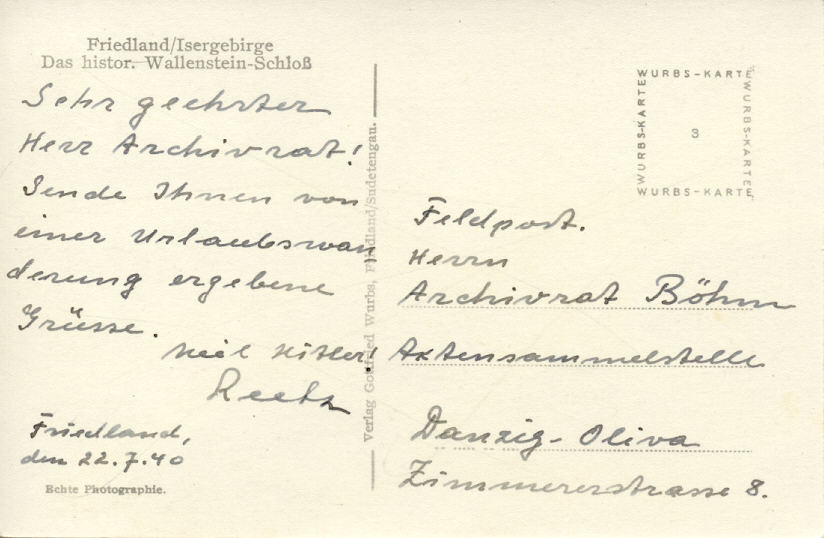 Friedland/Isergebirge
Das histor. Wallenstein-Schloß
Sehr geehrter
Herr Archivrat!
Sende Ihnen von
einer Urlaubswan
derung ergebene
Grüsse.
Heil Hitler!
Reetz
Friedland,
den 22.7.40
Echte Photographie.
Verlag Gottfried Wurbs, Friedland/Sudetengau.
WURBS-KARTE
WURBS-KARTE
WURBS-KARTE
WURBS-KARTE
3
Feldpost.
Herrn
Archivrat Böhm
Aktensammelstelle
Danzig-Oliva
Zimmererstrasse 8.